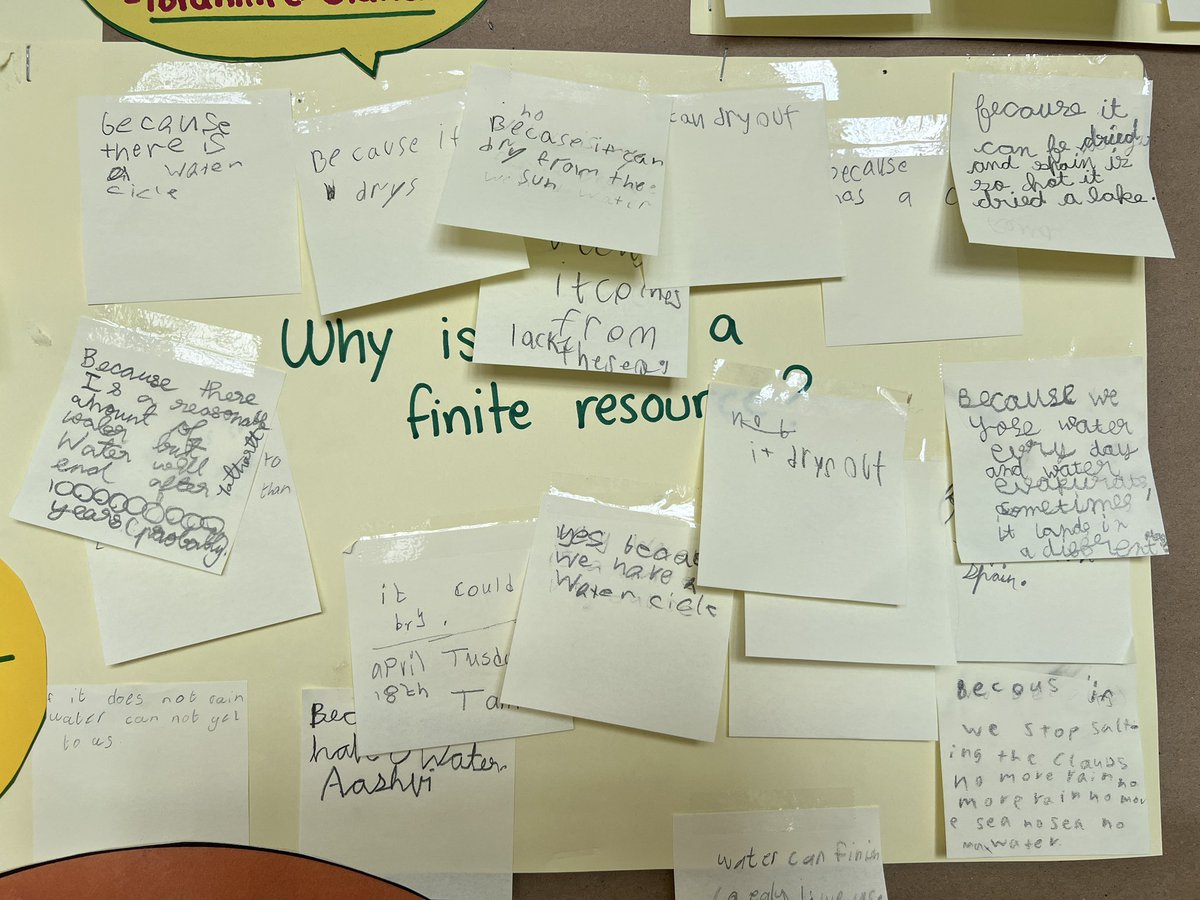 because
there is
a water
cicle
Because it
drys
no
Becase it can
dry from the
sun water
can dry out
ecause
has a
because it
can be dried
and spain is
so hot it
dried a lake.
it comes
from
lack
these
Why is a
finite resour ?
Because there
Is a reasonable
amount of
water but
Water will
end after
10000000000
years (probably).
Yatharth
to
than
no
it drys out
Because we
yose water
evry day
and water
evaporats,
sometimes
it lands in
a different
Spain.
it could
bry.
april Tusd
18th
yes becau
we have a
Water cicle
it does not rain
water can not get
to us.
Bec
hal Water.
Aashvi
Becous if
we stop salt-
ing the clauds
no more rain no
more rain no mor
e sea no sea no
water.
water can finish